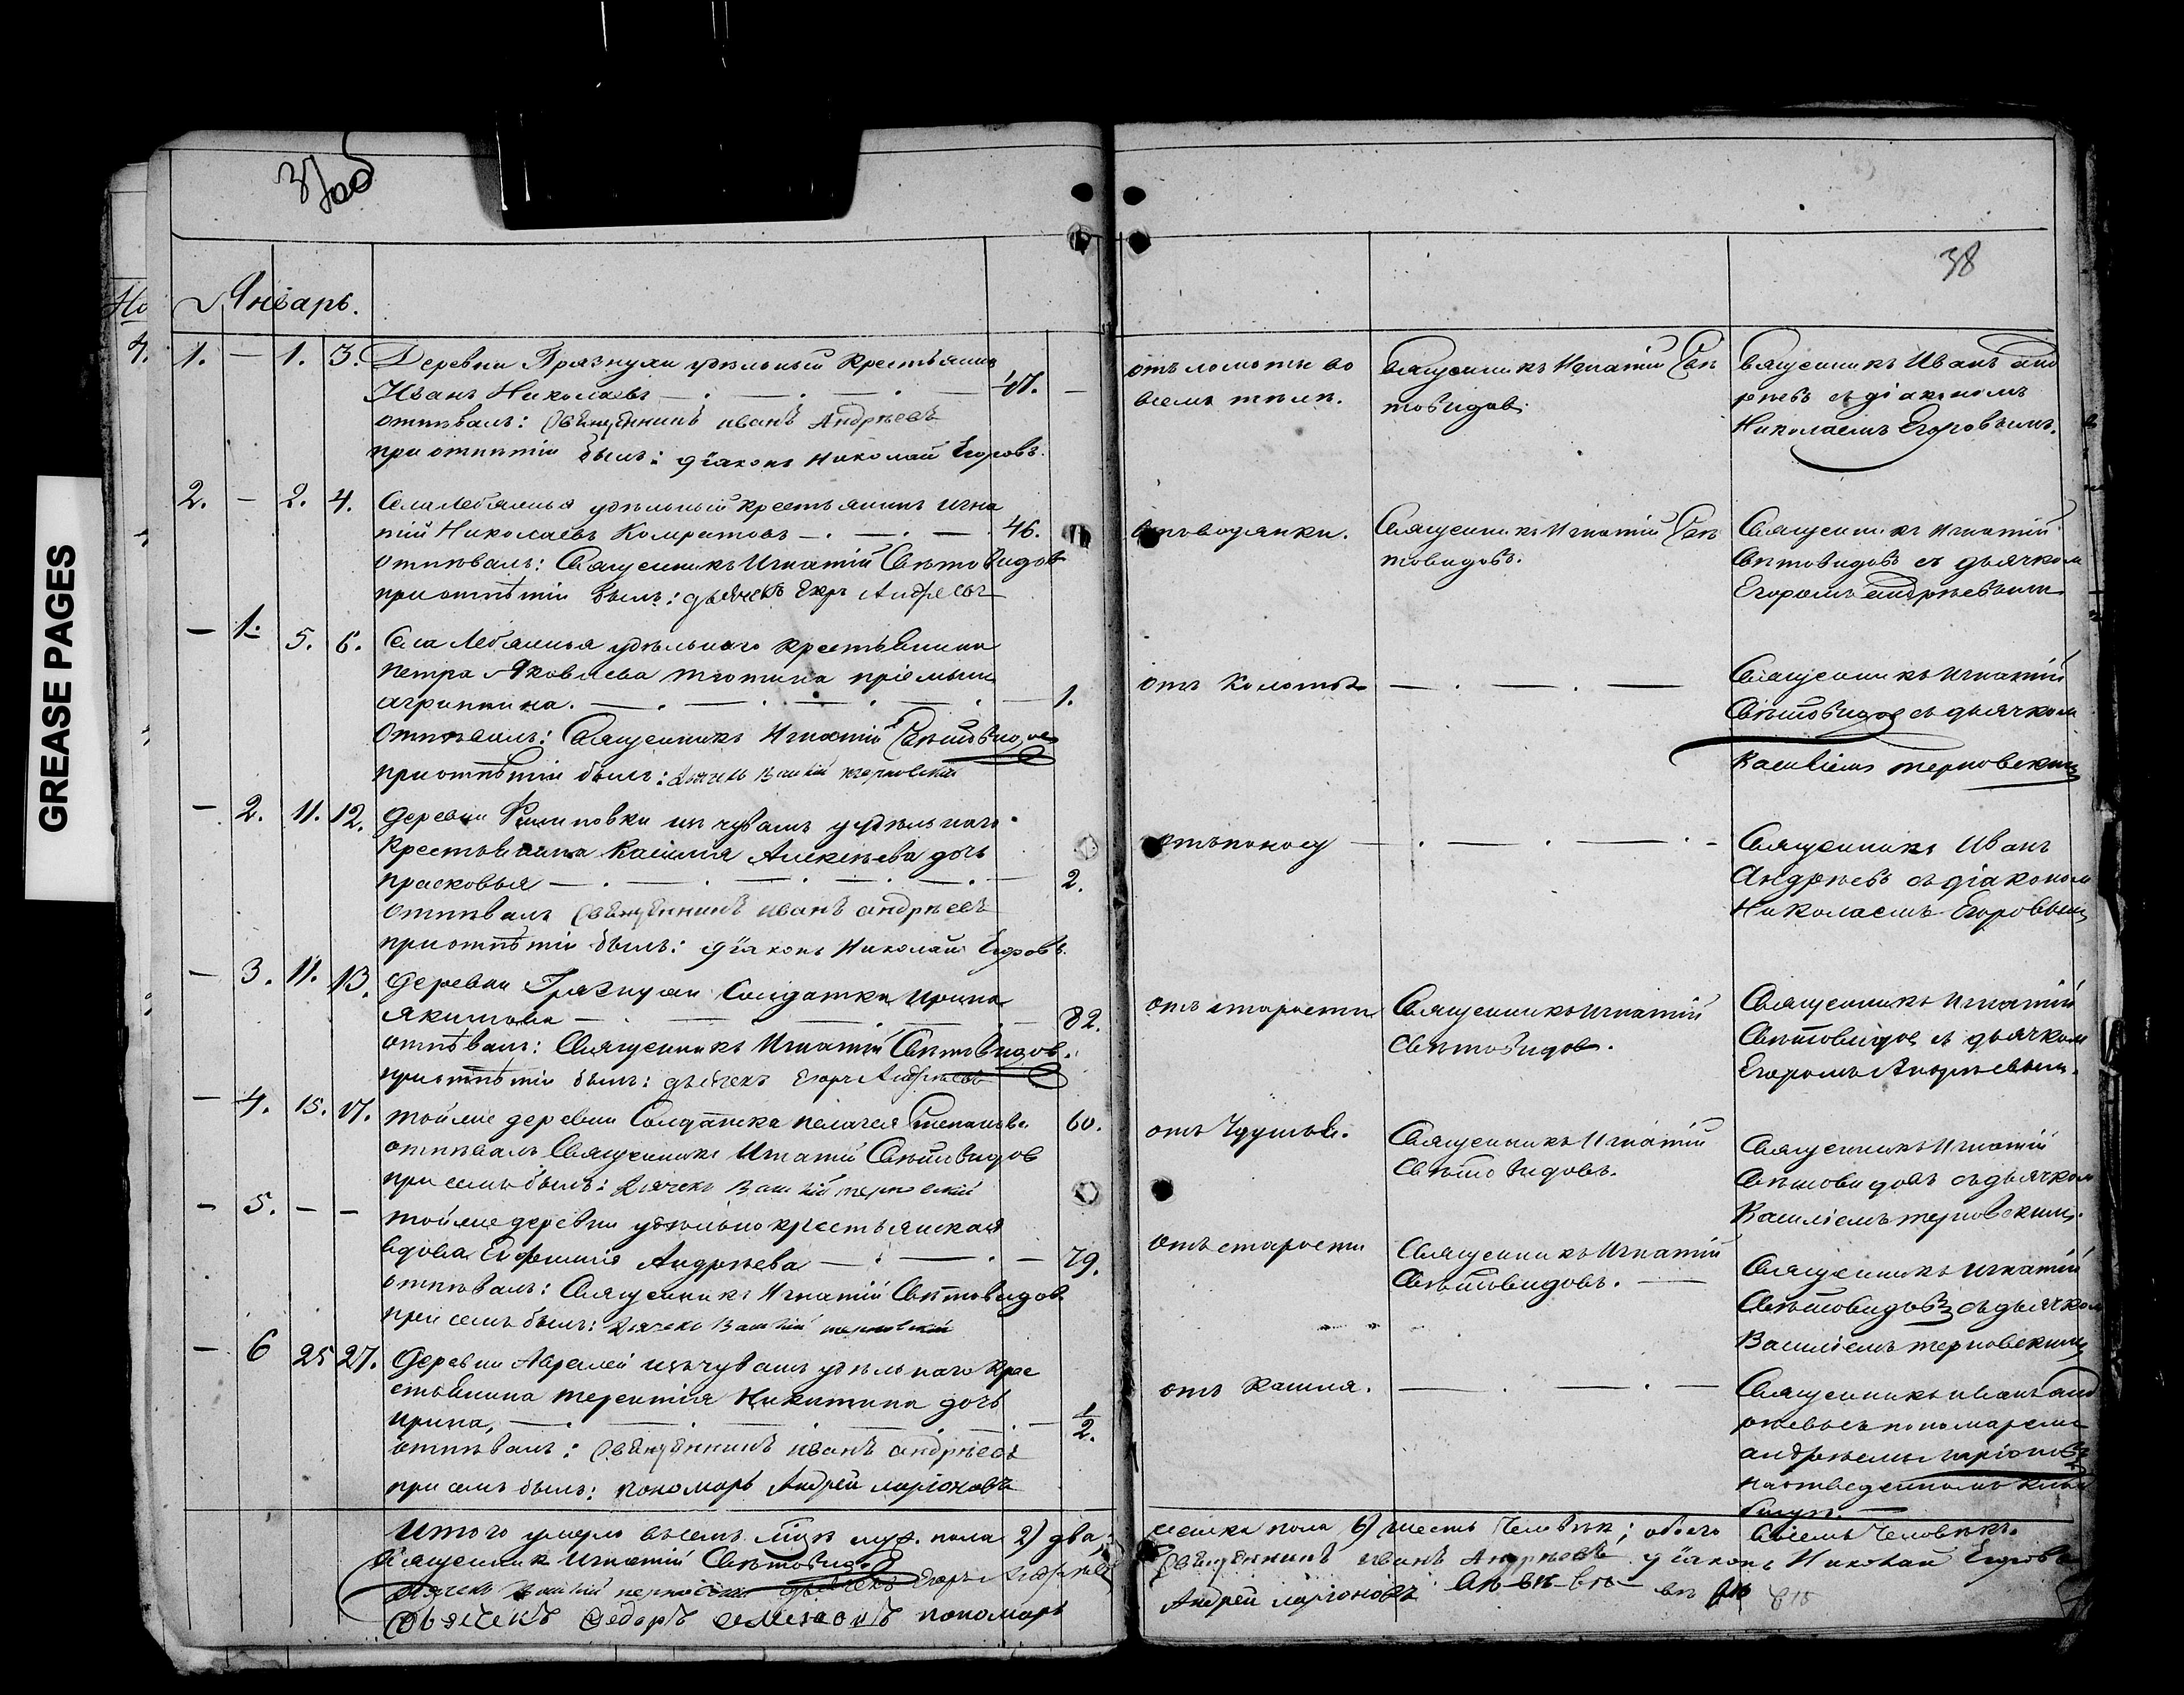 GREASE PAGES
37об
38
Январь.
1. — 1. 3. Деревни Грязнухи удѣльный крестьянинъ
Иванъ Николаевъ — 47. —
отпѣвалъ: Священникъ иванъ Андрѣевъ
при отпѣтіи былъ: діаконъ Николай Егоровъ.
отъ ломоты во
всемъ тѣлѣ.
Священникъ Игнатій Свѣ
товидовъ.
Священникъ Иванъ Анд
рѣевъ съ діакономъ
Николаемъ Егоровымъ.
2. — 2. 4. Села Лебяжья удѣльный крестьянинъ Игна
тій Николаевъ — 46.
отпѣвалъ: Священникъ Игнатій Свѣтовидовъ
при отпѣтіи былъ: дьячекъ Егоръ Андреевъ
отъ водянки.
Священникъ Игнатій Свѣ
товидовъ.
Священникъ Игнатій
Свѣтовидовъ съ дьячкомъ
Егоромъ Андрѣевымъ
— 1. 5. 6. Села Лебяжья удѣльнаго крестьянина
Петра Яковлева пріемышъ
агрипина. — 1.
Отпѣвалъ: Священникъ Игнатій Свѣтовидовъ
при отпѣтіи былъ: Дьячекъ Василій терновскій
отъ Колотья —
Священникъ Игнатій
Свѣтовидов съ дьячкомъ
Василіемъ терновскимъ
— 2. 11. 12. деревни Филиповки изъ чувашъ удѣльнаго
крестьянина Василія Алексѣева дочь
прасковья — 2.
Отпѣвалъ Священникъ иванъ андрѣевъ
при отпѣтіи былъ: діаконъ Николай Егоровъ.
отъ поносу —
Священникъ Иванъ
Андрѣевъ съ діакономъ
Николаемъ Егоровымъ
— 3. 11. 13. деревни Грязнухи Солдатка Ирина
Якимова — 82.
отпѣвалъ: Священникъ Игнатій Свѣтовидов.
при отпѣтіи былъ: дьячекъ Егоръ Андреевъ
отъ старости
Священникъ Игнатій
Свѣтовидов.
Священникъ Игнатій
Свѣтовидов съ дьячкомъ
Егоромъ Андрѣевымъ.
— 4. 15. 17. тойже деревни Солдатка пелагея Степанова 60.
отпѣвалъ Священникъ Игнатій Свѣтовидов
при семъ былъ: Дьячекъ Василій терновскій
отъ Удушья.
Священникъ Игнатій
Свѣтовидовъ.
Священникъ Игнатій
Свѣтовидовъ съ дьячкомъ
Василіемъ терновскимъ.
— 5. — — тойже деревни удѣльно крестьянская
вдова Андрѣева — 79.
отпѣвалъ: Священникъ Игнатій Свѣтовидов.
при семъ былъ: Дьячекъ Василій терновскій
отъ старости
Священникъ Игнатій
Свѣтовидовъ. —
Священникъ Игнатій
Свѣтовидовъ съ дьячкомъ
Василіемъ терновскимъ
— 6 25 27. деревни изъ чувашъ удѣльнаго крес
стьянина терентія Никитина дочь
ирина, — 1/2.
отпѣвалъ: Священникъ иванъ андрѣевъ
при семъ былъ: пономарь Андрей ларіоновъ
отъ кашля. —
Священникъ иванъ анд
рѣевъ съ пономаремъ
андрѣемъ ларіоновъ
на отведенномъ клад
бищѣ. —
Итого умерло въ семъ мцѣ муж. пола 2) два,
женска пола 6) шесть человѣкъ; обоего восемь человѣкъ.
Священник Игнатій Свѣтовидов
Священникъ иванъ Андрѣевъ діаконъ Николай Егоровъ
Дьячекъ Василій терновскій дьячекъ Егоръ Андреевъ
Андрей ларіоновъ
Дьячекъ Федоръ пономарь